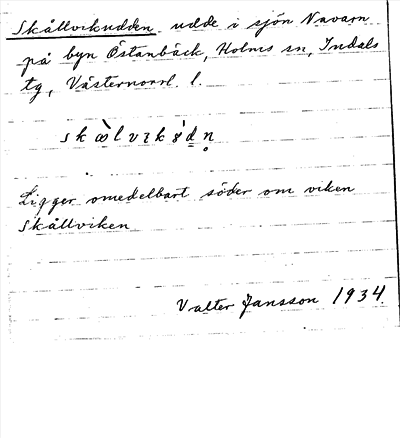 Skållvikudden, udde i sjön Navarn
på byn Östanbäck, Holms sn, Indals
tg, Västernorrl. l.
Ligger omedelbart söder om viken
Skållviken
Valter Jansson 1934.